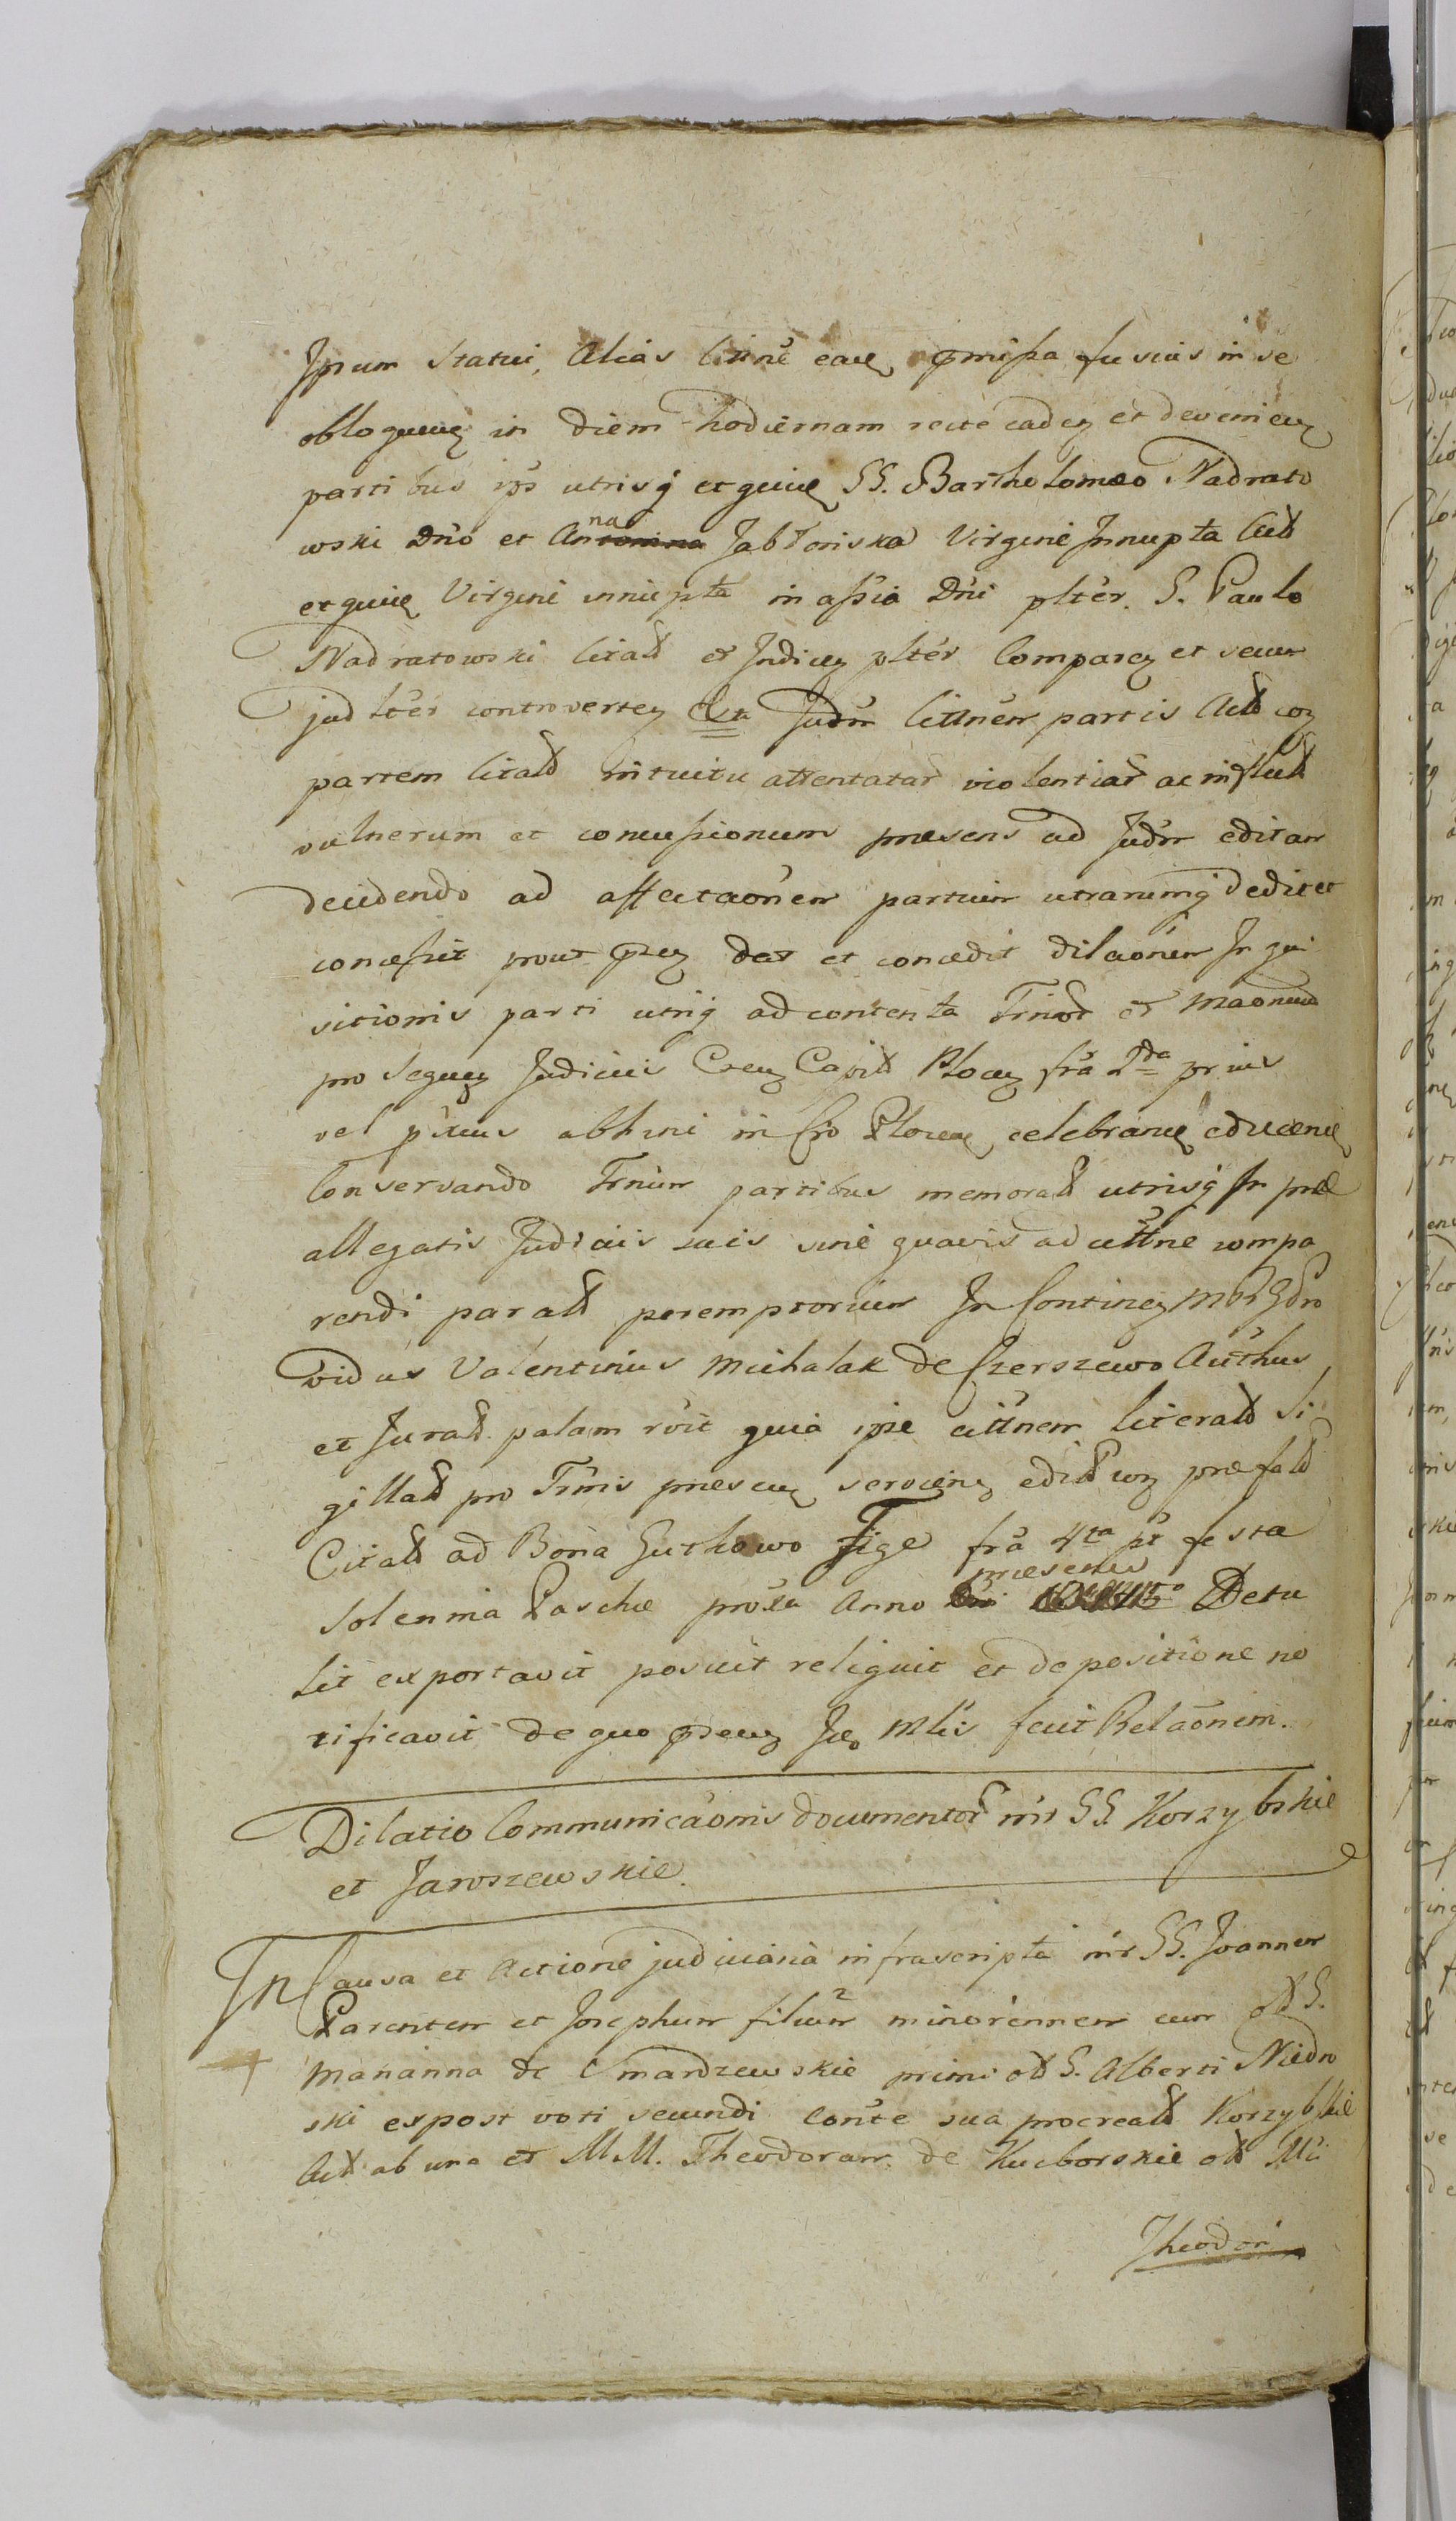 Ipsum Statui, Alias Citne eaq præmissa fusius in se
obloquuq in Diem hodiernam recte cadeq et devenieq
partibus ips utrisq et quiuq GG. Bartholomæo Nadrato
wski Dno et Anna Jabłoniska Virgine Innupta Actt
et quiuq Virgine innupta in assia Dni plter. G. Paulo
Nadratowski Citatt et Indicuq plter Compareq et secum
judlter controverteq Judm Cittnem partis Actt coq
partem Citatt intuitu attentatar violentiar ac inflictt
vulnerum et concussionum præsens ad Judm editam
decidendo ad affectaonem partium utrarumq dedit et
concessit prout dat et concedit dilaonem Inqui
sitionis parti utriq ad contenta Trnor et
pro sequeq Judiciis Capitt Plocq fra 2da prius
vel pxius abhinc in Cro Plocen celebranq educenq
Conservando Trnum partibus memoratt utrisq In præ
allegatis Judiciis suis sine quavis ad cittne compa
rendi paratt peremptorium In Contineq
vidus Valentinus Michalak de Czerszewo Authus
et Juratt palam roit quia ipse cittnem literatt Si
gillatt pro Trnis præseq editt coq præfatt
Citatt ad Bona Gutkowo fra 4ta pt festa
præsenti
Solennia Paschæ proxa Anno Detu
lit exportavit posuit reliquit et de positione no
tificavit de quo Mlis fecit Relaonem.
Dilatio Communicaonis documentor intr GG Korzybskie
et Jaroszewskie.
In Causa et Actione judiciaria infrascripta intr GG. Joannem
Parentem et Josephum filium minorennem cum ott G.
Marianna de Smardzewskie primi ott G. Alberti Niedro
ski expost voti secundi Conte sua procreatt Korzybskie
Actt ab una et MM. Theodoram de Kuciborskie ott Mci
Theodori